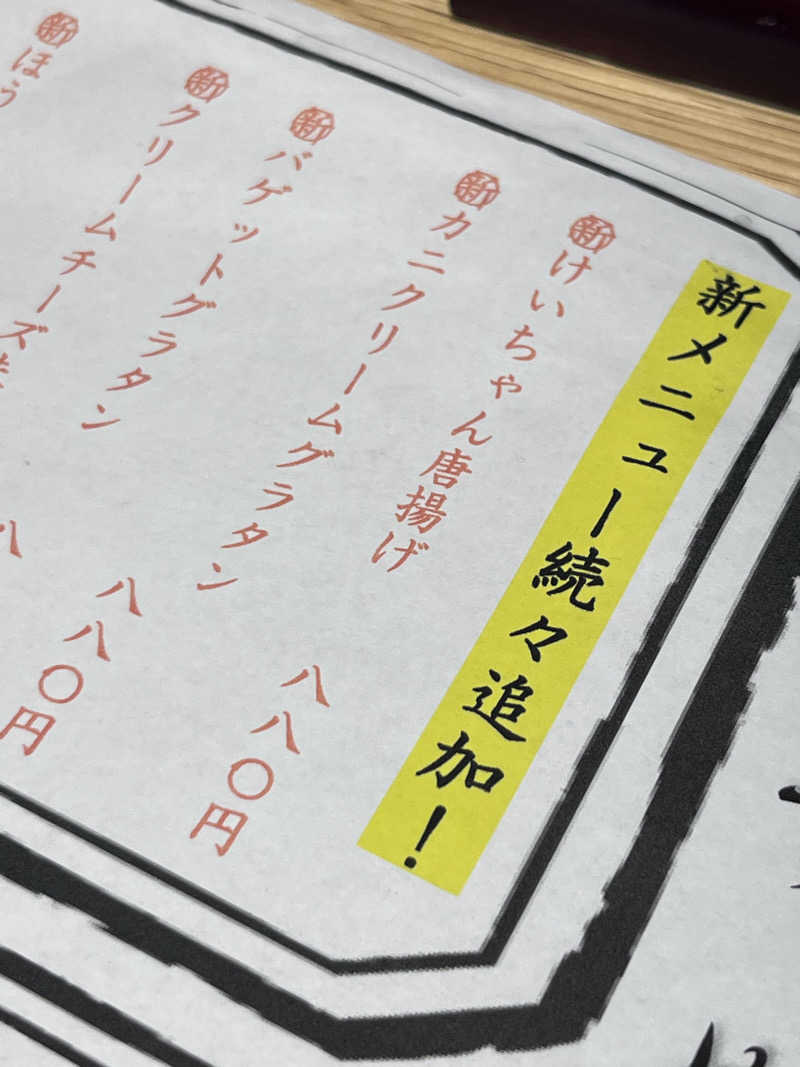 新メニュー続々追加!
新けいちゃん唐揚げ 八八〇円
新カニクリームグラタン 八八〇円
新バゲットグラタン 八
新クリームチーズ
新ほう